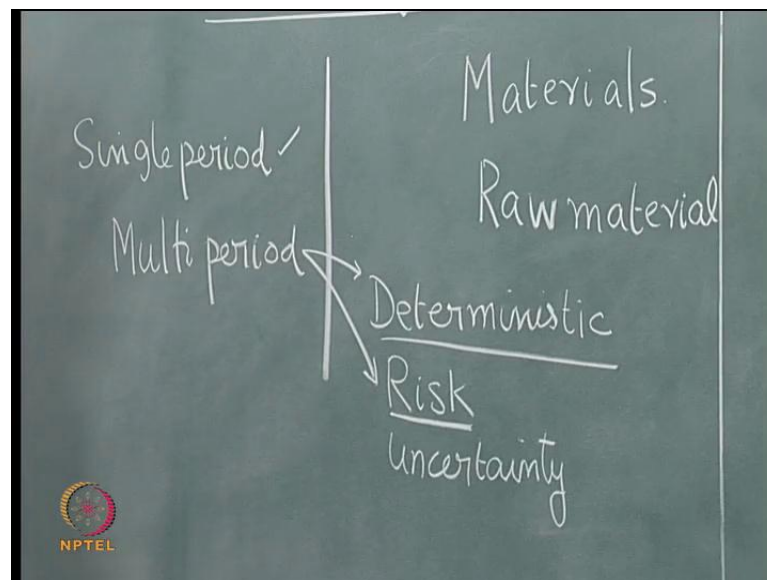 Single period ✓
Multi period
Materials.
Raw material
Deterministic
Risk
uncertainty
NPTEL